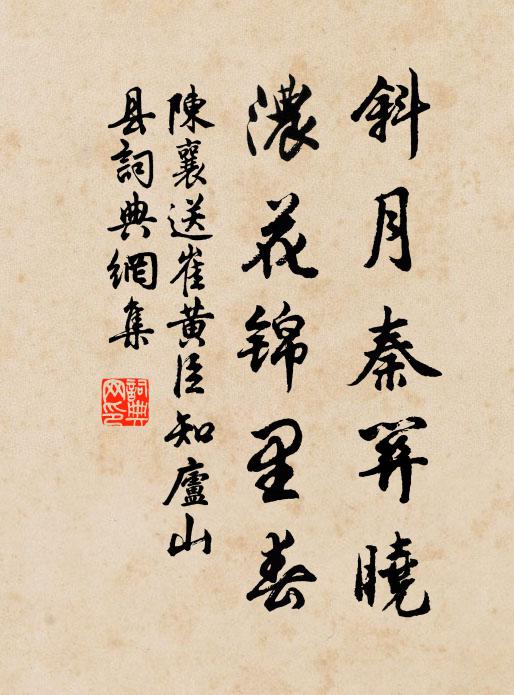 斜月秦關曉
濃花錦里春
陳襄送崔黄臣知廬山
县詞典網集
詞典
网印